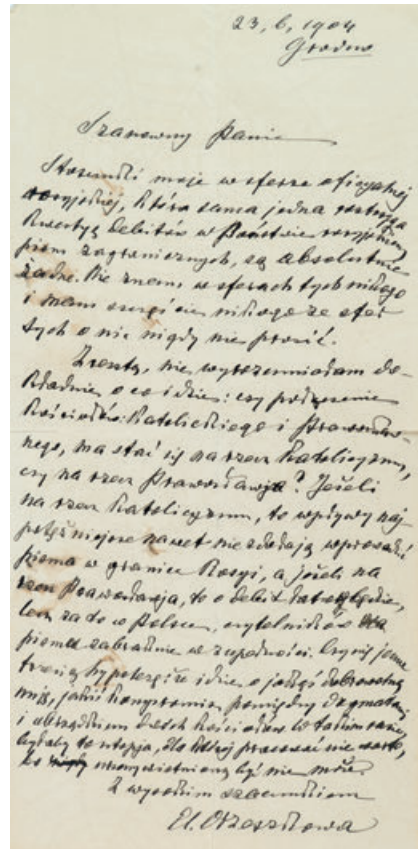 23, 6, 1904
Grodno
Szanowny Panie
Stosunki moje w sferze oficyalnej
rosyjskiej, która sama jedna roztrząsa
kwestyą debitów w Państwie rosyjskiem
pism zagranicznych, są absolutnie
żadne. Nie znam w sferach tych nikogo
i mam szczęście nikogo ze sfer
tych o nic nigdy nie prosić.
Zresztą, nie wyrozumiałam do-
kładnie o co idzie: czy połączenie
Kościołów: Katolickiego i Prawosław-
nego, ma stać się na rzecz Katolicyzmu,
czy na rzecz Prawosławja? Jeżeli
na rzecz Katolicyzmu, to wpływy naj
potężniejsze nawet nie zdołają wprowadzić
pisma w granice Rosyi, a jeżeli na
rzecz Prawosławja, to o debit łatwo będzie,
lecz za to w Polsce, czytelników
pismu zabraknie w zupełności. Czynię jeszcze
trzecią hypotezę: że idzie o jakąś dobrowolną
unję, jakiś kompromis pomiędzy dogmatami
i obrządkiem dwóch Kościołów. W takim razie,
byłaby to utopja, dla której pracować nie warto,
bo urzeczywistnioną być nie może.
Z wysokim szacunkiem
El. Orzeszkowa